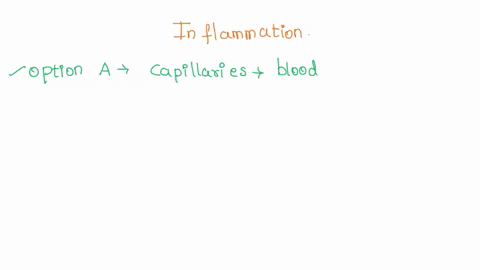 Inflammation.
✓option A → Capillaries → blood